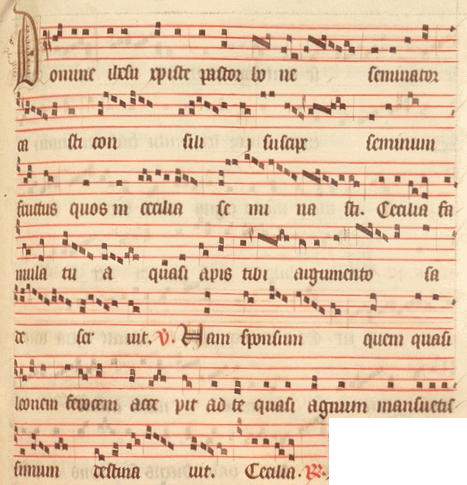 Domine ihesu xpiste pastor bo ne seminator
ca sti con sili suscipe seminum
fructus quos in cecilia se mi na sti. Cecilia fa
mula tu a quasi apis tibi argumento sa
de ser uit. V. Nam sponsum quem quasi
leonem ferocem acce pit ad te quasi agnum mansuetis
simum destina uit. Cecilia. R.